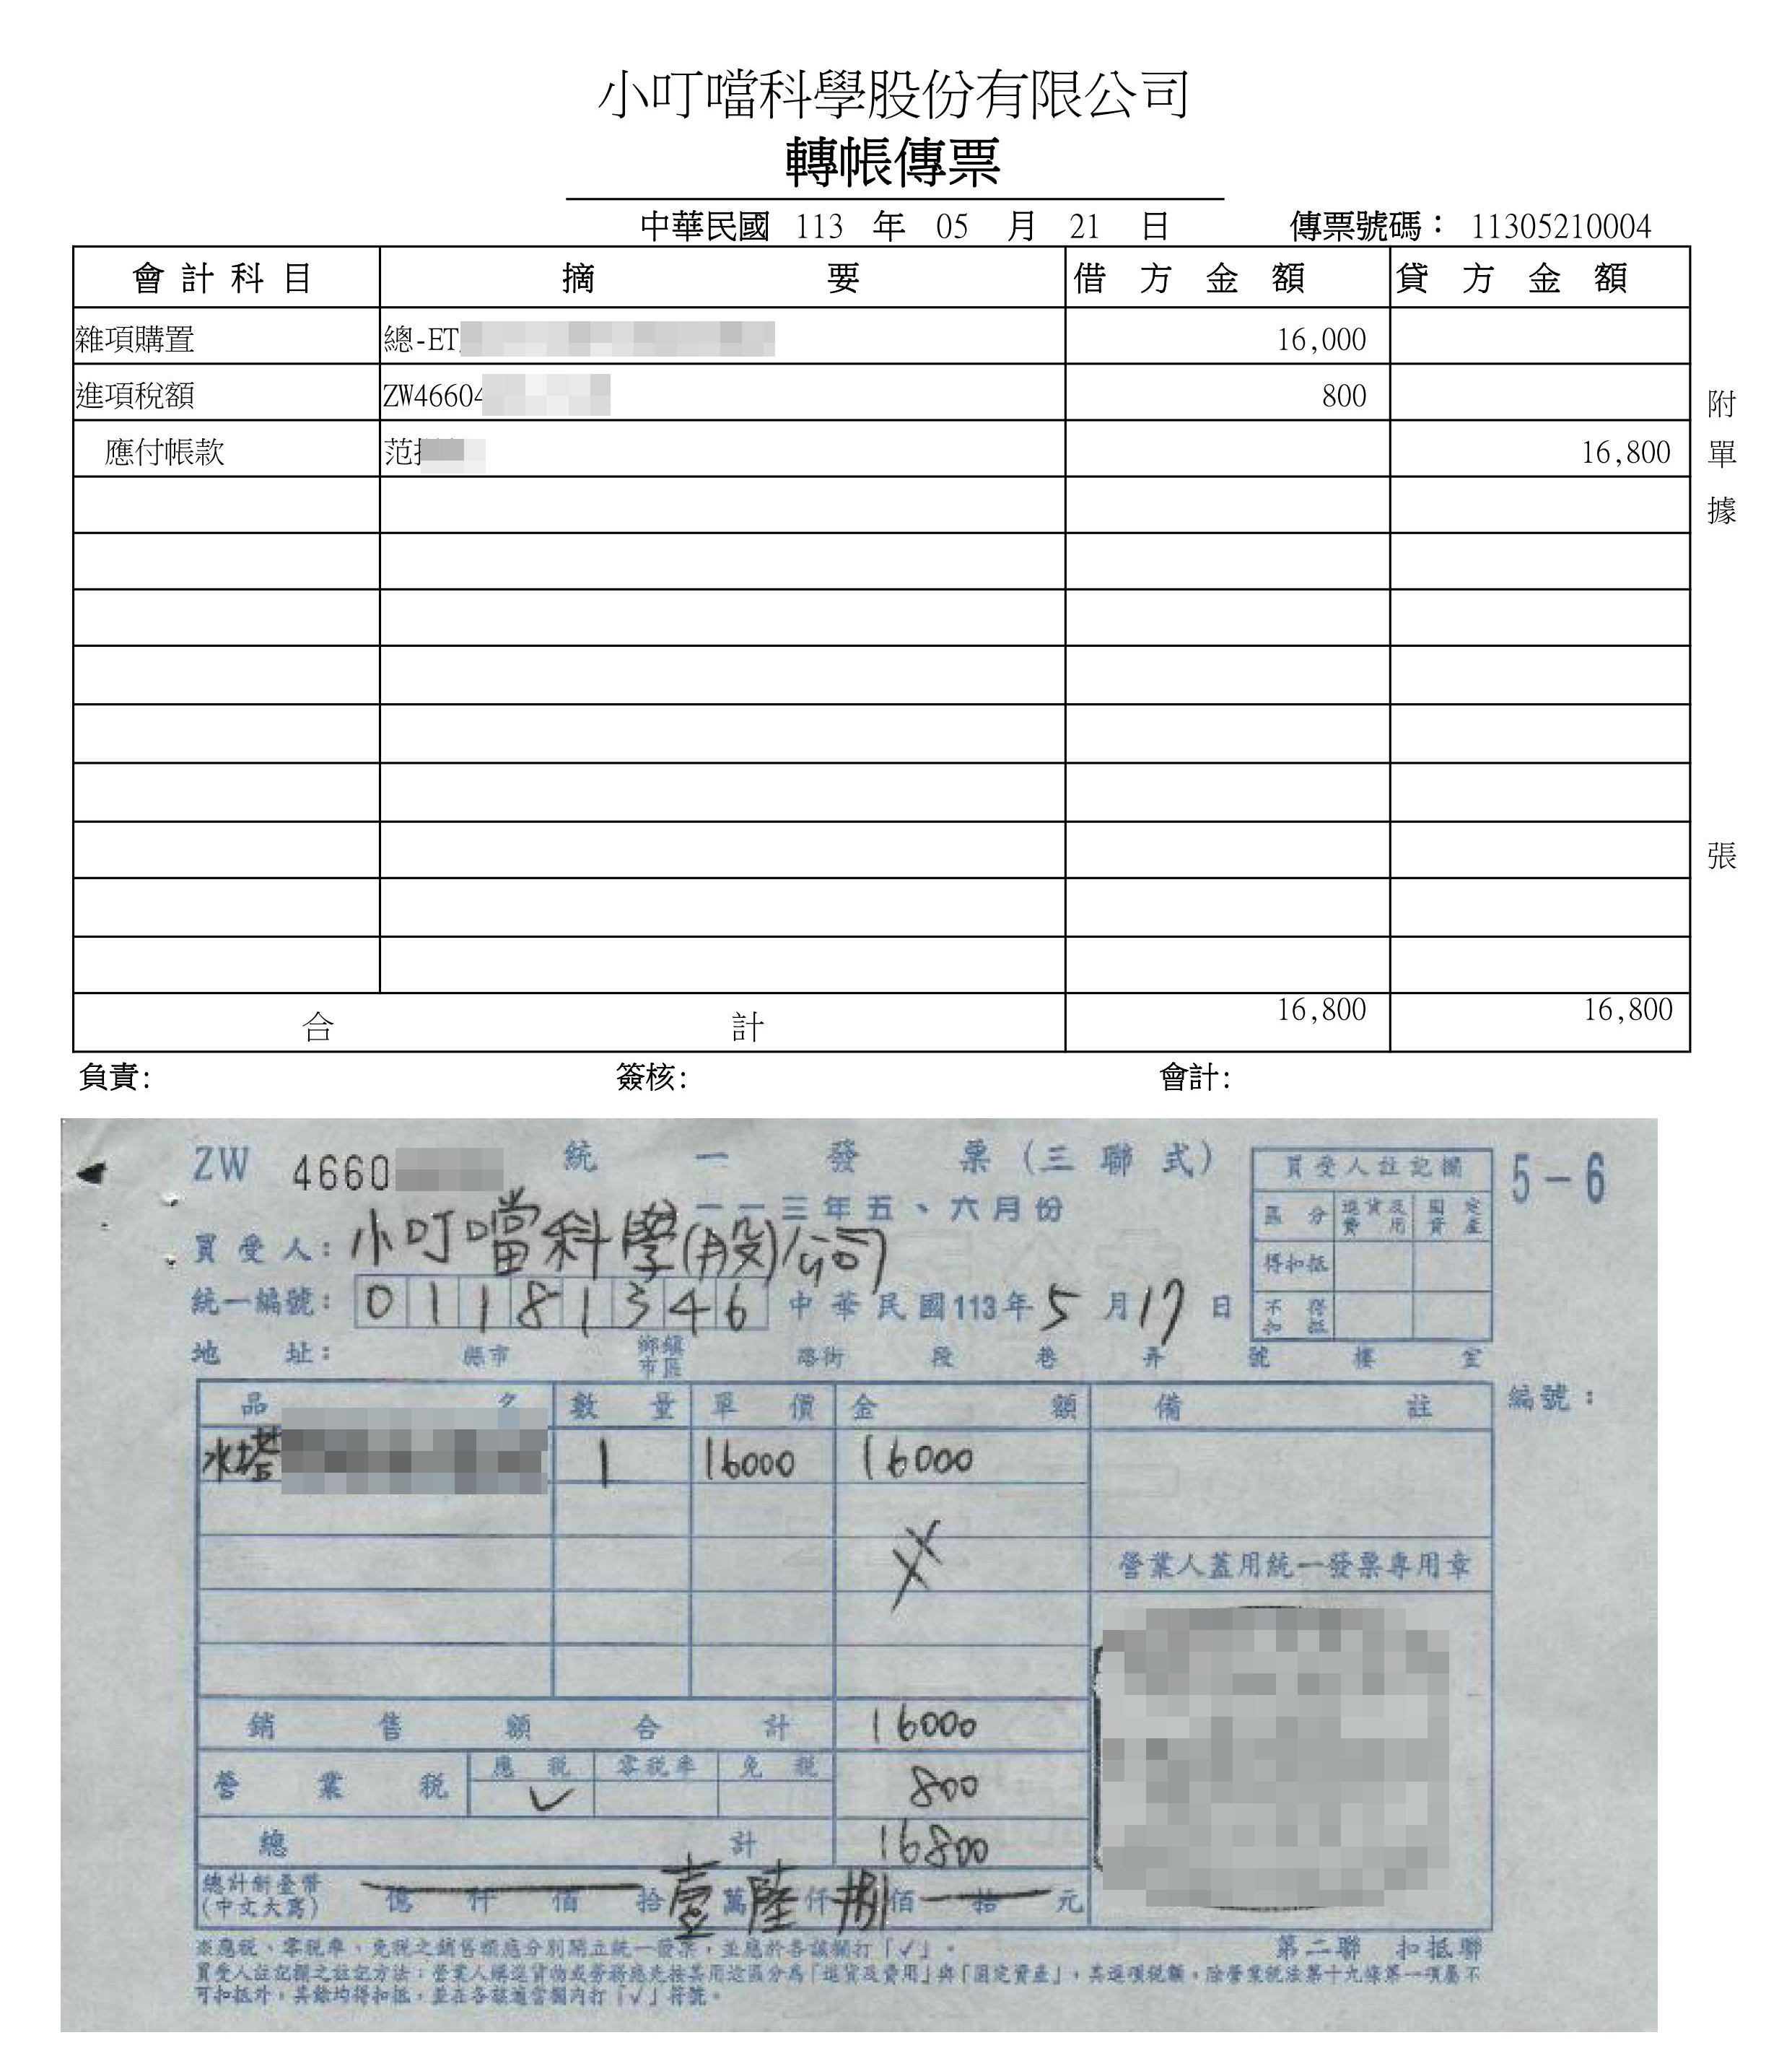 小叮噹科學股份有限公司
轉帳傳票
中華民國 113 年 05 月 21 日 傳票號碼： 11305210004
會計科目 摘要 借方金額 貸方金額
雜項購置 總-ET 16,000
進項稅額 ZW4660 800
應付帳款 范 16,800
附單據
張
合計 16,800 16,800
負責: 簽核: 會計:
ZW 4660 統一發票(三聯式) 買受人註記欄 5-6
一一三年五、六月份
區分 進貨及費用 固定資產
買受人: 小叮噹科學(股)公司
得扣抵
統一編號: 01181346 中華民國113年5月17日
不得扣抵
地址: 縣市 鄉鎮市區 路街 段 巷 弄 號 樓 室
品名 數量 單價 金額 備註 編號：
水塔 1 16000 16000
營業人蓋用統一發票專用章
銷售額合計 16000
營業稅 應稅 零稅率 免稅 800
✓
總計 16800
總計新臺幣(中文大寫) 億 仟 佰 拾 壹 萬 陸 仟 捌 佰 拾 元
※應稅、零稅率、免稅之銷售額應分別開立統一發票，並應於各該欄打「✓」。 第二聯 扣抵聯
買受人註記欄之註記方法：營業人購進貨物或勞務應先按其用途區分為「進貨及費用」與「固定資產」，其進項稅額，除營業稅法第十九條第一項屬不
可扣抵外，其餘均得扣抵，並在各該適當欄內打「✓」符號。